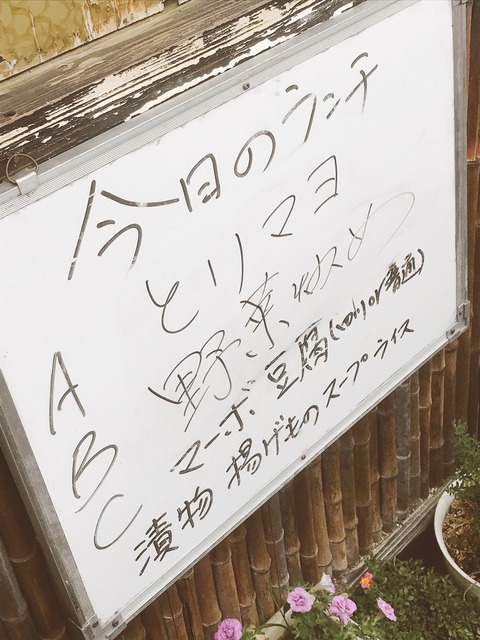 今日のランチ
A とりマヨ
B 野菜炒め
C マーボ豆腐(or普通)
漬物 揚げもの スープ ライス